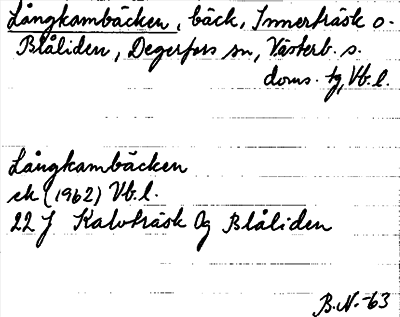 Långkambäcken, bäck, Innerträsk o.
Blåliden, Degerfors sn, Västerb. s.
doms. tg, Vb. l.
Långkambäcken
ek (1962) Vb. l.
22 J Kalvträsk Og Blåliden
B.N.-63